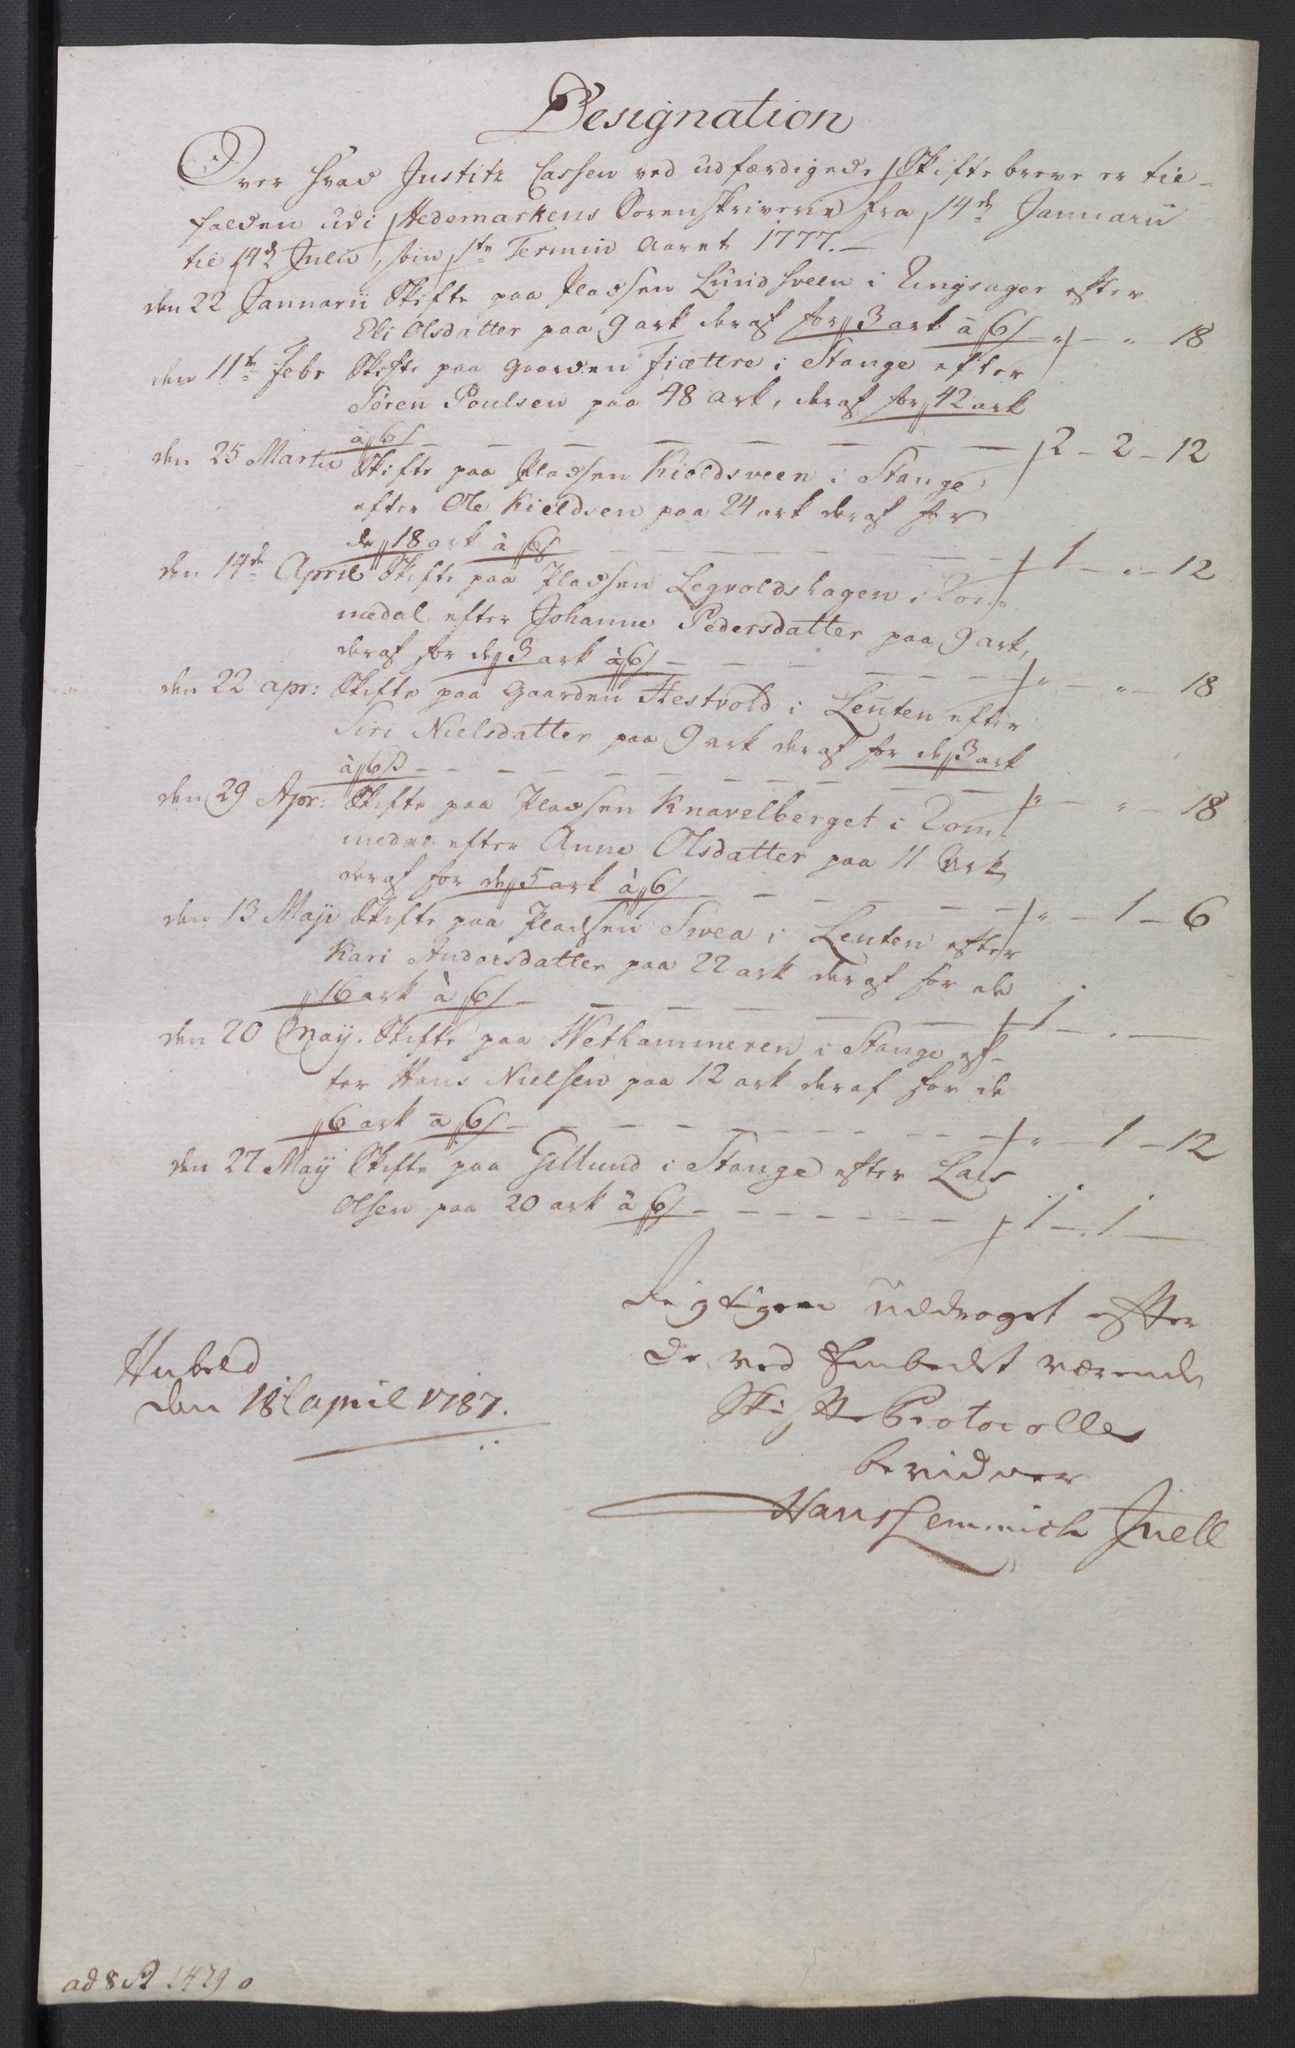 Designation
Over hvad Justitz Cassen ved udfærdigede Skifte breve er til-
falden udi Hedemarkens Sorenskriverie fra 14de Januarii
til 14de Julii, som 1te Termin Aaret 1777.
den 22 Januarii Skifte paa Pladsen Lundsveen i Ringsager efter
Eli Olsdatter paa 9 ark deraf for 3 ark à 6 s — " — " 18
den 11te Febr Skifte paa gaarden fiættre i Stange efter
Søren Poulsen paa 48 ark, deraf for 42 ark
à 6 s — 2 — 2 — 12
den 25 Martii Skifte paa Pladsen Kieldsveen i Stange
efter Ole Kieldsen paa 24 ark deraf for
de 18 ark à 6 s — 1 — " — 12
den 14de April Skifte paa Pladsen Legvoldshagen i Rom-
medal efter Johanne Pedersdatter paa 9 ark,
deraf for de 3 ark à 6 s — " — " — 18
den 22 apr: Skifte paa Gaarden Hestvold i Leuten efter
Siri Nielsdatter paa 9 ark deraf for de 3 ark
à 6 s — " — " — 18
den 29 Apr: Skifte paa Pladsen Knavelberget i Rom-
medal efter Anne Olsdatter paa 11 Ark
deraf for de 5 ark à 6 s — " — 1 — 6
den 13 Maji Skifte paa Pladsen Svea i Leuten efter
Kari Andersdatter paa 22 ark deraf for de
16 ark à 6 s — 1 — " —
den 20 May. Skifte paa Wethammeren i Stange ef-
ter Hans Nielsen paa 12 ark deraf for de
6 ark à 6 s — " — 1 — 12
den 27 Maij Skifte paa Gillund i Stange efter Lars
Olsen paa 20 ark à 6 s — 1 — 1 —
Rigtigen uddraget efter
de ved Embedet værende
Skifte Protocoller
bevidner
Hans Lemmich Juell
Hubeld
den 18 April 1787.
ad 8 1479